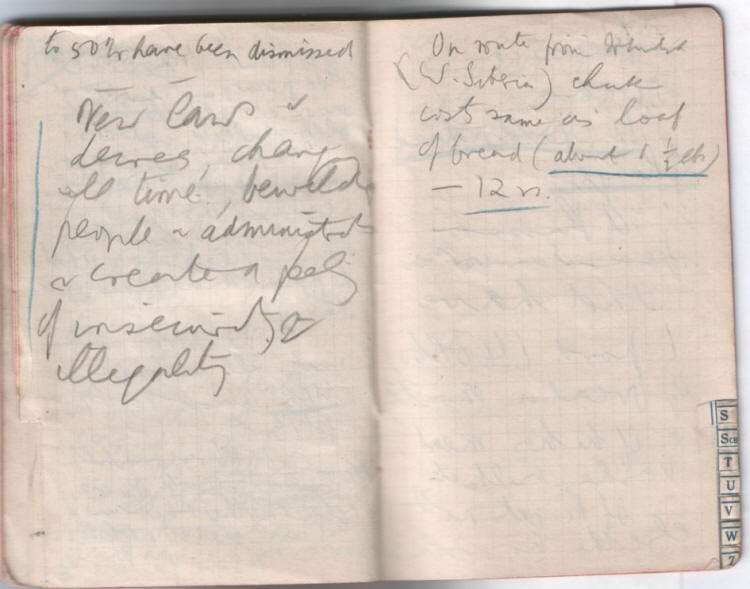 to 50% have been dismissed
New laws &
decrees, change
all time, bewilder
people & administrat
& create a
of insecurity &
illegality
On route from
(W. Siberia) chunk
costs same as loaf
of bread (about 1 1/2 lb)
— 12 rs.
S
Sch
T
U
V
W